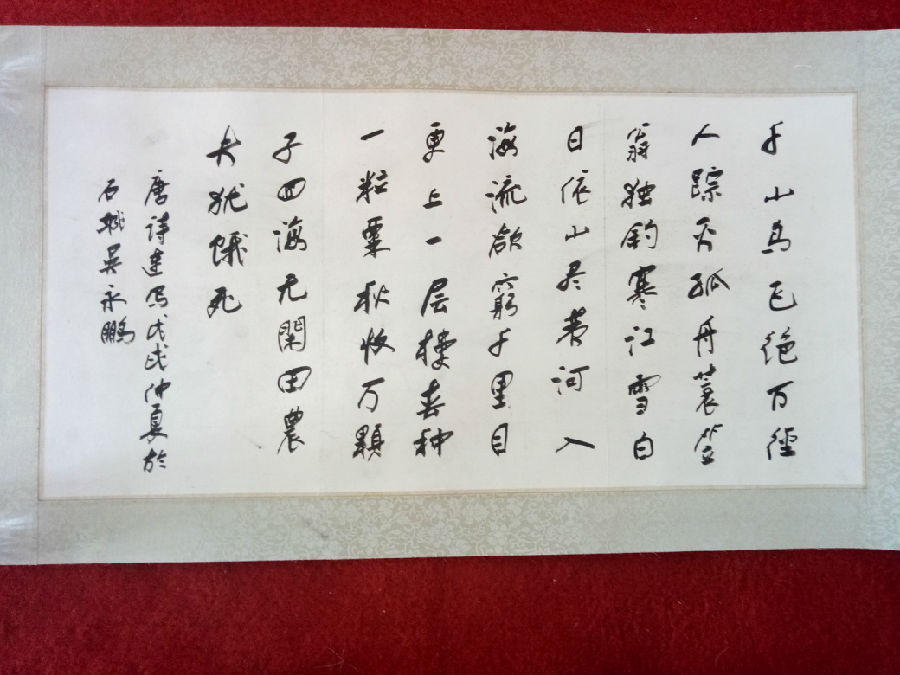 千山鸟飞绝万徑
人踪灭孤舟蓑笠
翁独钓寒江雪白
日依山尽黄河入
海流欲窮千里目
更上一层楼春种
一粒粟秋收万顆
子四海无閑田農
夫犹饿死
唐詩連写戊戌仲夏於
石城吴永鵬